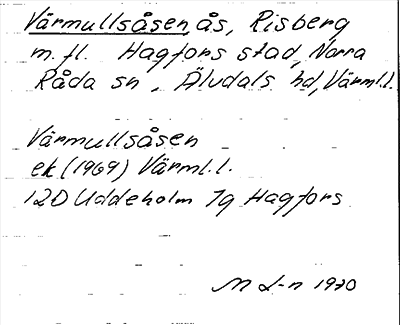 Värmullsåsen, ås, Risberg
m.fl. Hagfors stad, Norra
Råda sn, Älvdals hd, Värml.l.
Värmullsåsen
ek (1969) Värml.l.
12D Uddeholm 7g Hagfors
M L-n 1970